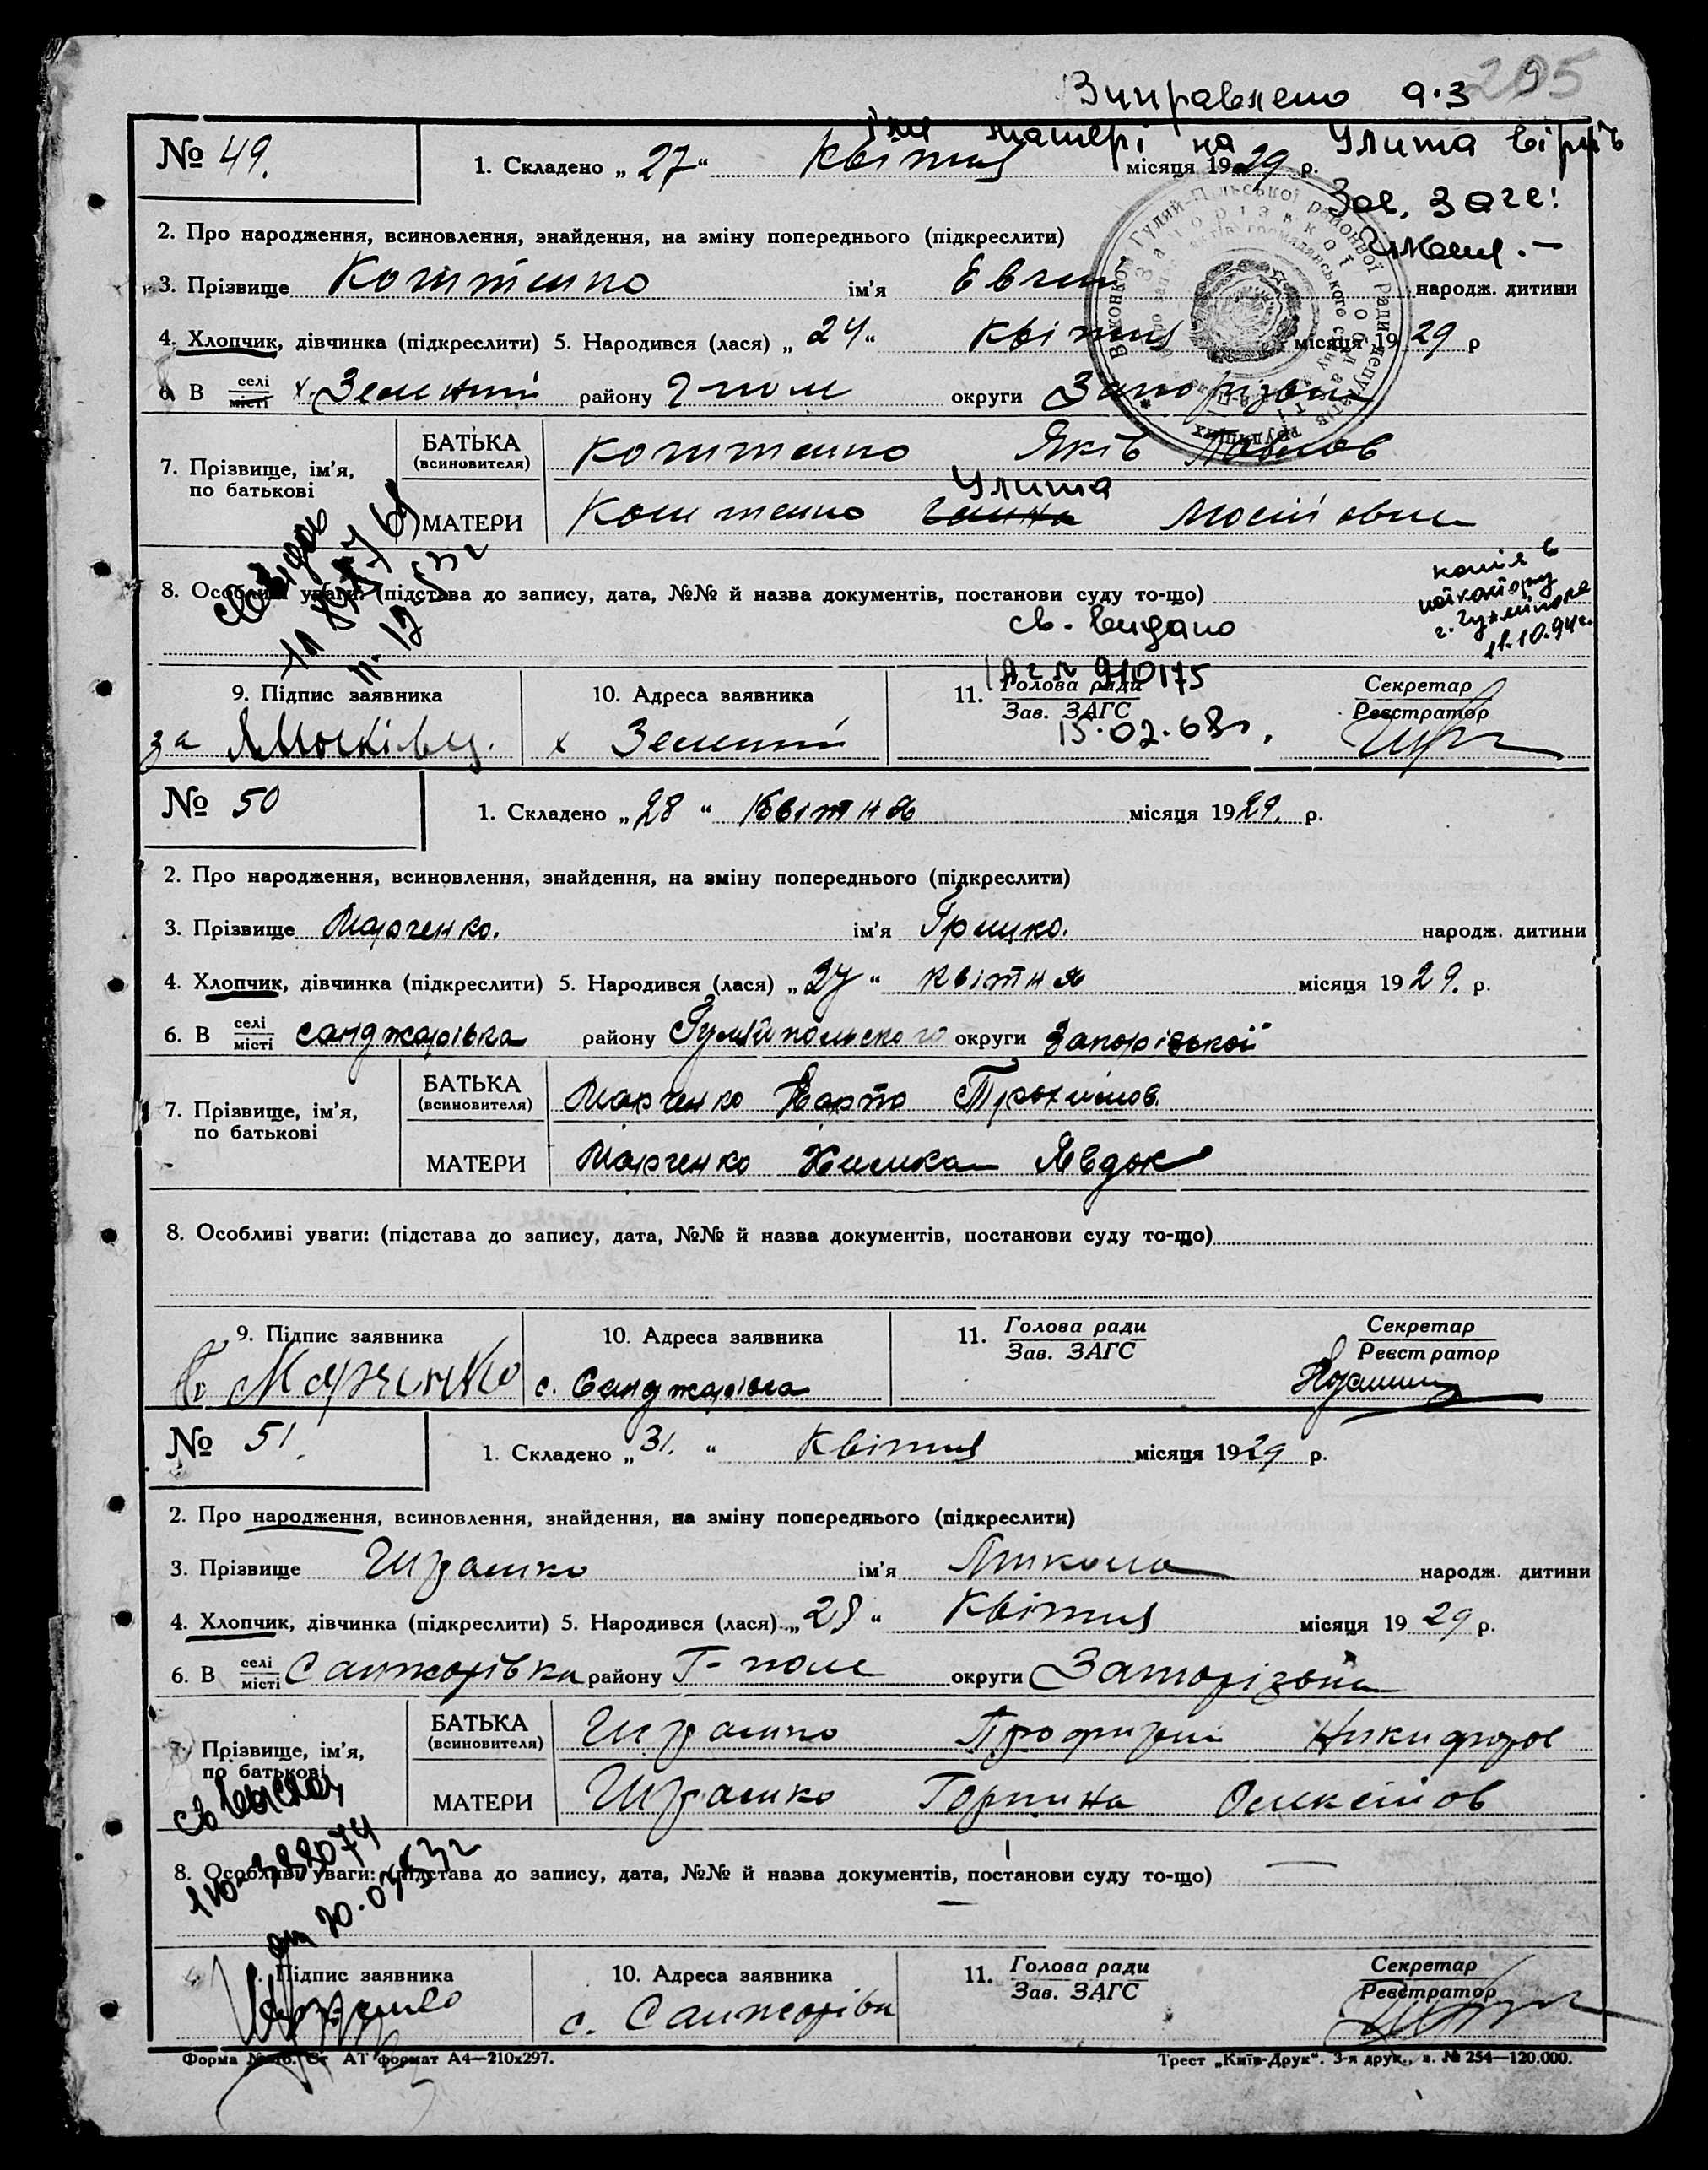 205
Виправлено а.з 9
імя матері на Улита вірить
№ 49. 1. Складено „ 27 “ квітня місяця 1929 р.
Зав. Загс:
2. Про народження, всиновлення, знайдення, на зміну попереднього (підкреслити)
3. Прізвище ім’я Евген народж. дитини
4. Хлопчик, дівчинка (підкреслити) 5. Народився (лася) „ 24 “ квітня місяця 19 29 р
6. В селі місті х. Зелений району Г-поле округи Запорізька
7. Прізвище, ім’я, по батькові
БАТЬКА (всиновителя) Яків Павлов
Улита
МАТЕРИ Мосійовна
8. Особливі уваги: (підстава до запису, дата, №№ й назва документів, постанови суду то-що)
копія в
11.10.94г.
св. видано
910175
15.02.68г.
9. Підпис заявника 10. Адреса заявника 11. Голова ради Зав. ЗАГС Секретар Реєстратор
за х Зелений
№ 50 1. Складено „ 28 “ Квітня місяця 1929. р.
2. Про народження, всиновлення, знайдення, на зміну попереднього (підкреслити)
3. Прізвище Марченко. ім’я Грицко. народж. дитини
4. Хлопчик, дівчинка (підкреслити) 5. Народився (лася) „ 27 “ квітня місяця 19 29. р.
6. В селі місті Санджарівка району Гуляйпольского округи Запорізької
7. Прізвище, ім’я, по батькові
БАТЬКА (всиновителя) Марченко Карпо Трохимов.
МАТЕРИ Марченко Химка Явдок
8. Особливі уваги: (підстава до запису, дата, №№ й назва документів, постанови суду то-що)
9. Підпис заявника 10. Адреса заявника 11. Голова ради Зав. ЗАГС Секретар Реєстратор
Марченко с. Санджарівка
№ 51. 1. Складено „ 31. “ Квітня місяця 1929 р.
2. Про народження, всиновлення, знайдення, на зміну попереднього (підкреслити)
3. Прізвище Шрамко ім’я Микола народж. дитини
4. Хлопчик, дівчинка (підкреслити) 5. Народився (лася) „ 28 “ Квітня місяця 19 29 р.
6. В селі місті Санжарівка району Г-поле округи Запорізька
7. Прізвище, ім’я, по батькові
БАТЬКА (всиновителя) Шрамко Никифоров
МАТЕРИ Шрамко Горпина
8. Особливі уваги: (підстава до запису, дата, №№ й назва документів, постанови суду то-що)
9. Підпис заявника 10. Адреса заявника 11. Голова ради Зав. ЗАГС Секретар Реєстратор
с. Санжарівка
АТ формат А4—210x297. Трест „Київ-Друк“. 3-я друк., з. № 254—120.000.